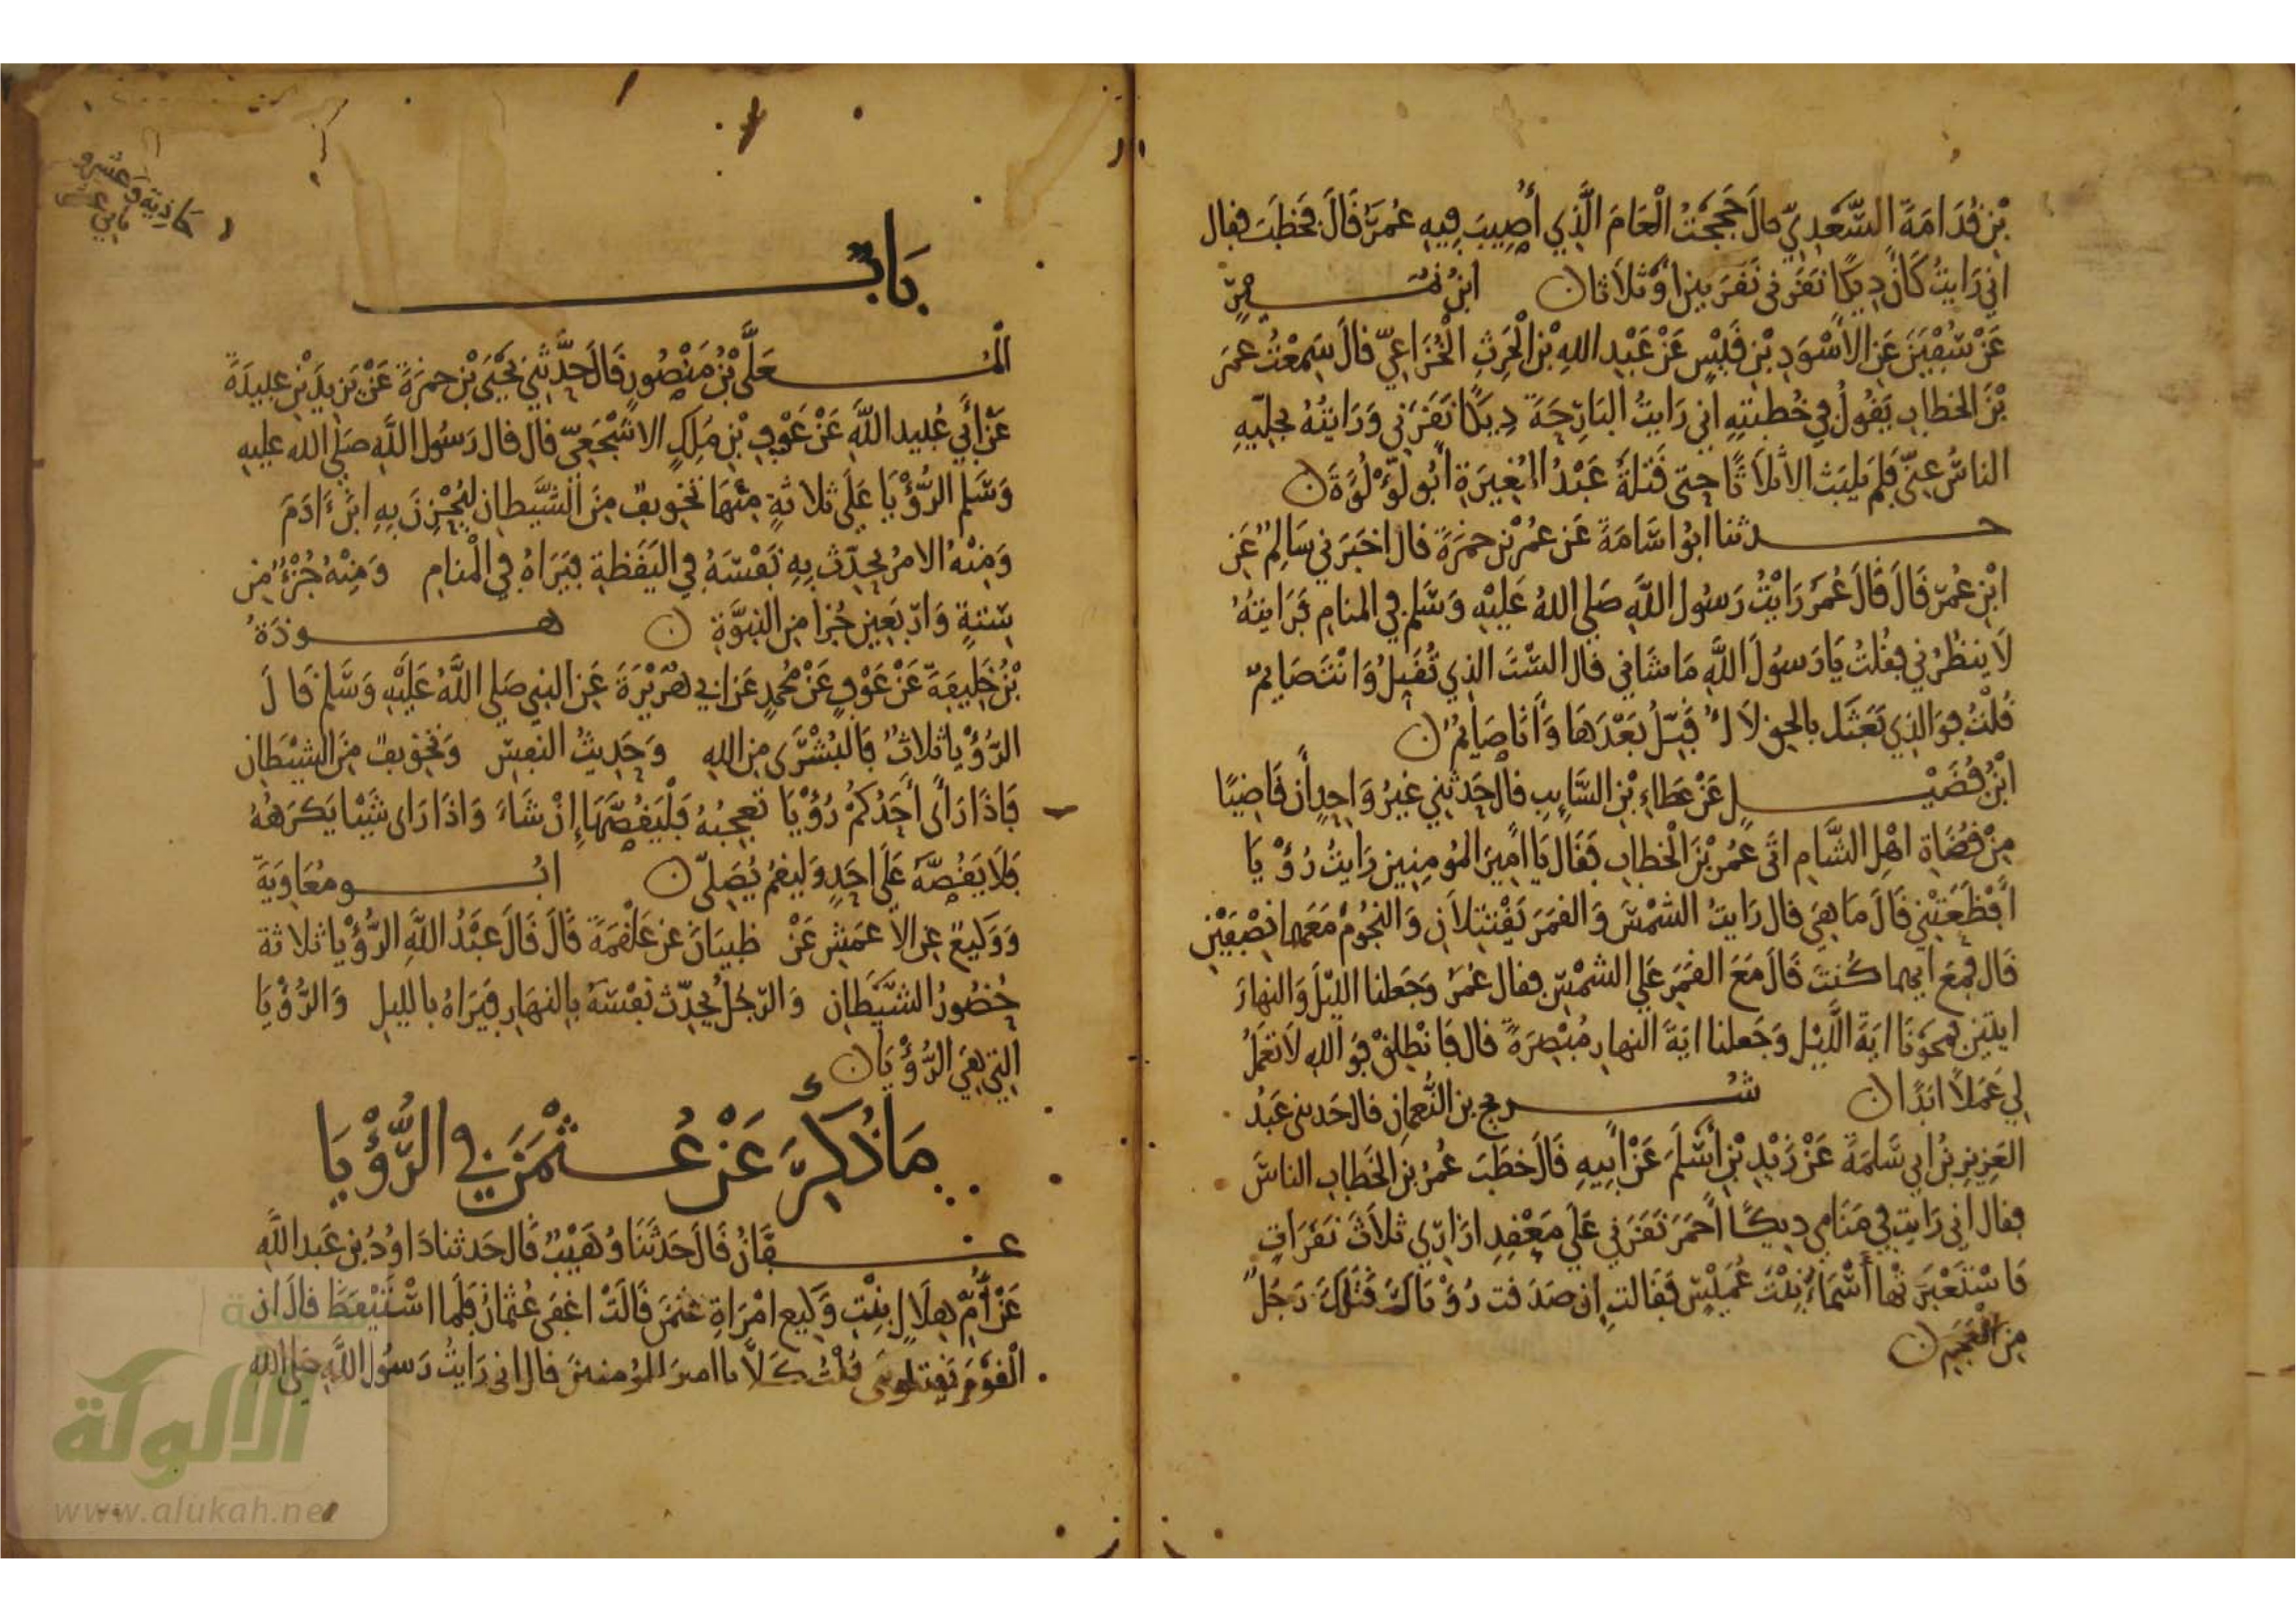 بْنِ قُدَامَةَ السَّعْدِيّ قالَ حَجَجْتُ الْعَامَ الَّذِي أُصِيبَ فِيهِ عُمَرُ قَالَ فَخَطَبَ فقال
اني رَايتُ كَانَ دِيكًا نَقَرَني نَقَرَتينِ أوْ ثلاَثا ن ابنُ نُمَيرٍ
عَنْ سُفْيَنَ عَنِ الاَسْوَدِ بْنِ قَيْسٍ عَنْ عَبْدِ اللهِ بْنِ الْحَرِثِ الْخُزَاعِيّ قالَ سَمِعْتُ عمرَ
بْنَ الخطابِ يَقُولُ فِي خُطبتِهِ اني رَايتُ البَارِحَةَ دِيكًا نَقَرَني وَرَايتُهُ يجلّيهِ
الناسُ عنّي فلم يلبث الا ثلاَثًا حتى قَتلهُ عَبْدُ المُغِيرَةِ أبُو لُؤْلُؤَةَ ن
حدثنا ابوُ اسَامَةَ عَن عُمرَ بْن حمزَةَ قال اخبَرَني سَالِمٌ عَن
ابْنِ عُمَرَ قَالَ قَالَ عُمَرُ رَايْتُ رَسولَ اللَّهِ صَلى اللهُ عَلَيْهِ وَسَلم في المنامِ فَرَايتُهُ
لاَ ينظُرُني فقُلتُ يَا رَسُولَ اللَّهِ مَا شَاني قال السْتَ الذِي تُقبِّلُ وَانتَ صَايمٌ
قُلتُ فوَالذِي بَعَثَك بالحقِ لاَ اُقَبِّلُ بَعْدَهَا وَأنا صَايمٌ ن
ابْنُ فُضَيْلٍ عَنْ عَطاءِ بْنِ السَّايِبِ قال حَدثني غيرُ وَاحِدٍ أن قَاضِيًا
مِنْ قضَاةِ اهْلِ الشَّامِ اتَى عُمَرَ بْنَ الْخطابِ فقَال يَا أميرَ المُومِنِين رَايتُ رُؤْيَا
أفْظَعَتْنِي قَالَ مَا هِيَ قال رَايتُ الشمْسَ وَالقمَرَ يَقْتَتِلاَنِ وَالنجُومُ مَعَهما نِصْفَيْنِ
قَال فمَعَ ايهما كُنتَ قَالَ مَعَ القمَرِ عَلى الشمْسِ فقال عُمَرُ وَجَعلنا الليْلَ وَالنهارَ
ايتَين فمحَوْنَا ايَةَ اللَّيْلِ وَجَعلنا ايَةَ النهارِ مُبْصِرَةً قال فَانْطلِقْ فوَاللهِ لاَ تعْمَلُ
لي عَمَلاً ابَدًا ن شُريح بن النُّعمانِ قال حَدثني عَبْدُ
العَزِيزِ بْنُ ابي سَلمَةَ عَنْ زَيْدِ بْنِ أَسْلَمَ عَنْ أبِيهِ قَالَ خطَبَ عُمرُ بن الخَطابِ الناسَ
فقال إني رَايتُ في مَنَامي دِيكًا أحمَرَ نَقَرَني عَلَى مَعْقِدِ ازَارِي ثلاَثَ نَقَرَاتٍ
فَاسْتَعْبَرَتْها أَسْمَاءُ بِنْتُ عُمَيْسٍ فقَالت اِن صَدَقت رُؤْيَاكَ قَتَلَكَ رَجُلٌ
مِنَ الْعَجَمِ ن
بَابٌ
الْمُعَلَّى بْنُ مَنْصُورٍ قَالَ حَدَّثَنِي يَحْيَى بْنُ حمزَةَ عَنْ يَزِيدَ بْنِ عبيدَةَ
عَنْ أَبي عُبيد اللَّهِ عَنْ عَوْفِ بْنِ مٰلِكٍ الاشْجَعِيّ قال قال رَسُول اللَّهِ صَلى الله عليهِ
وَسَلم الرُّؤْيَا عَلَى ثلاثةٍ مِنْهَا تخْويفٌ مِنَ الشَّيطانِ ليُحْزِنَ بِهِ ابنَ ءَادَمَ
وَمِنْهُ الامرُ يحدّث بِهِ نَفسَهُ في اليَقظةِ فيَرَاهُ في الْمنامِ وَمِنْهُ جُزْءٌ مِن
سِتةٍ وَارْبَعِينَ جُزا مِن النبوَّةِ ن هوذَةُ
بْنُ خَلِيفَةَ عَنْ عَوْفٍ عَنْ مُحمدٍ عَن ابي هُرَيْرَةَ عَنِ النبي صَلى اللَّهُ عَلَيْهِ وَسَلم قَالَ
الرُّؤْيا ثلاثٌ فَالبُشْرَى مِن اللهِ وَحَدِيثُ النفسِ وَتخويفٌ مِنَ الشيْطانِ
فَاذَا رَأَى أَحَدُكُمْ رُؤْيَا تعجبُهُ فَلْيَقُصَّهَا إِنْ شَاءَ وَاذَا رَاى شَيْئا يَكرَهُهُ
فَلاَ يَقُصّهُ عَلَى احَدٍ وَليقمْ يُصَلّي ن ابُو معُاوِيَةَ
وَوَكِيعٌ عن الاَعمَشِ عَنْ ظبيَانَ عَن عَلْقمَةَ قَالَ قَالَ عَبْدُ اللَّهِ الرُّؤْيا ثلاثة
حُضُورُ الشَّيْطَانِ وَالرّجُلُ يُحدِّث نفسَهُ بِالنهَارِ فيَرَاهُ بالليلِ وَالرُّؤْيَا
التِي هِيَ الرُّؤْيَا ن
مَا ذُكِرَ عَنْ عُثْمٰنَ في الرُّؤْيَا
عفَّانُ قَالَ حَدَّثَنَا وُهَيْبٌ قَال حَدثنا دَاوُدُ بن عَبدِ اللَّهِ
عَنْ أُمِّ هِلاَلٍ بِنْتِ وَكِيع امْرَاةِ عثمنَ قَالَتْ اغفَى عُثمانُ فَلَمَا اسْتَيْقظَ قَالَ ان
الْقوْمَ يَقتلونَنِي قُلْتُ كَلاَّ يا امير المُومنينَ قال اني رَايتُ رَسولَ اللَّهِ صَلى الله
الألوكة
www.alukah.net